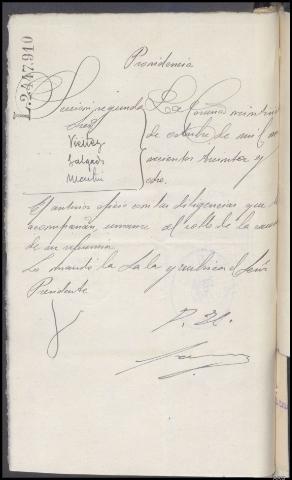 L.2447.910
Providencia
Sección segunda
Sres
Vieitez
Salgado
La Coruña veintiuno
de octubre de mil no
vecientos treinta y
El anterior oficio con las diligencias que
acompañan, únanse al rollo de la causa
de su referencia.
Lo mandó la Sala y rubrica el Señor
Presidente